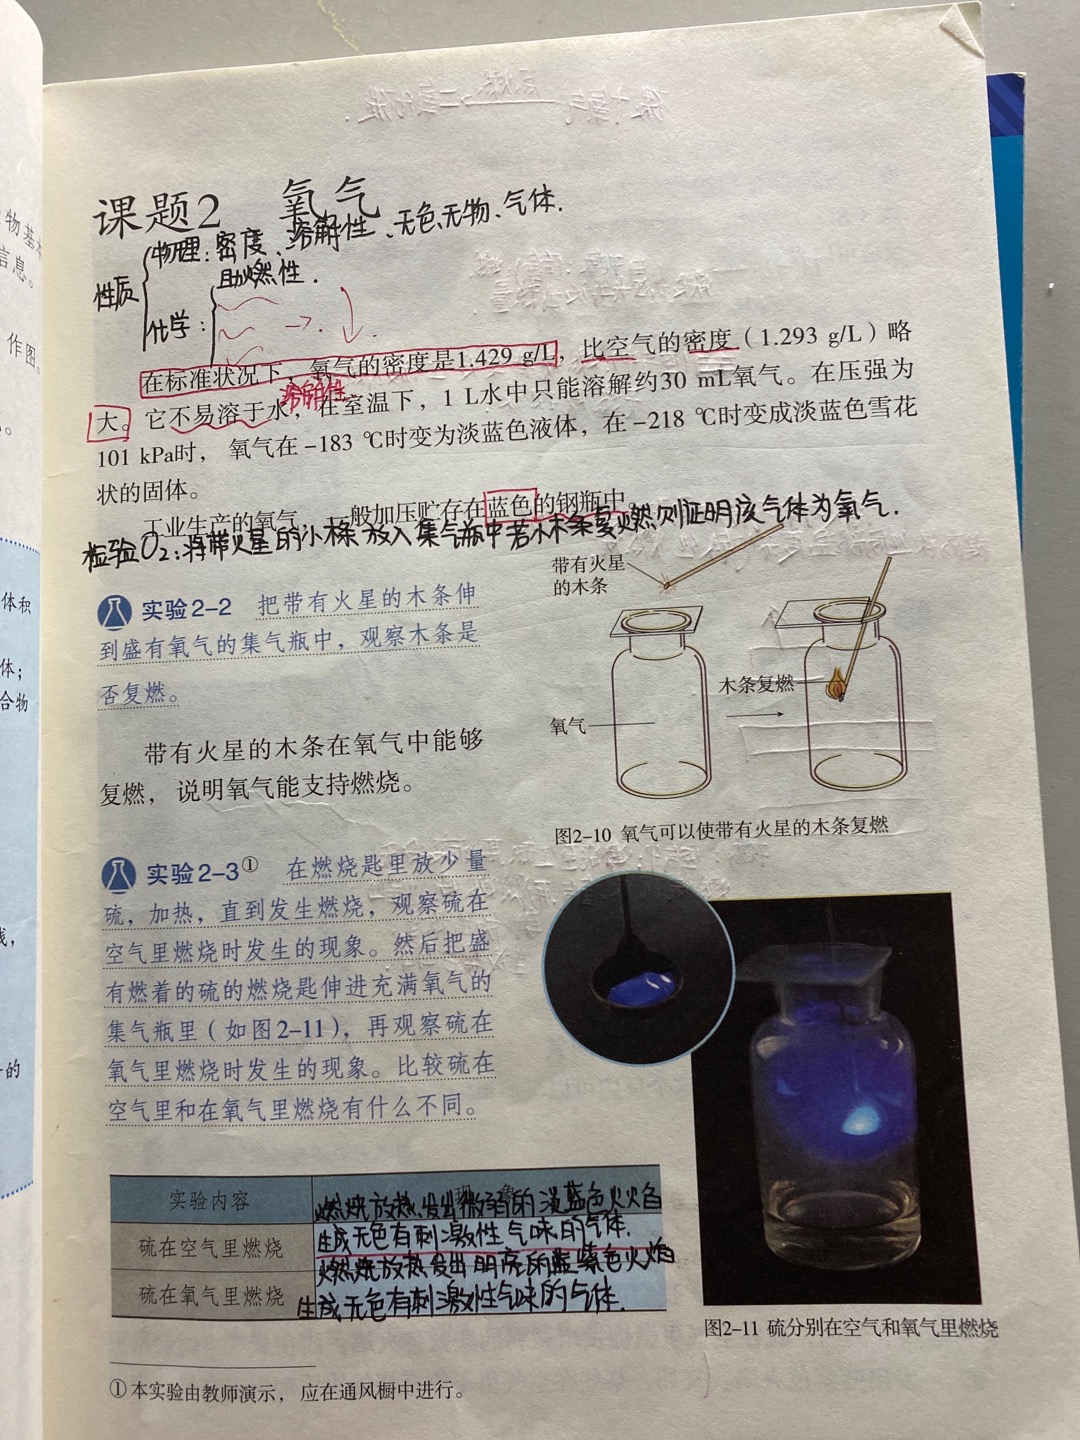 课题2 氧气
性质
物理：密度、溶解性、无色无物、气体.
化学：
助燃性.
在标准状况下，氧气的密度是1.429 g/L，比空气的密度（1.293 g/L）略
溶解性
大。它不易溶于水，在室温下，1 L水中只能溶解约30 mL氧气。在压强为
101 kPa时，氧气在 -183 ℃时变为淡蓝色液体，在 -218 ℃时变成淡蓝色雪花
状的固体。
工业生产的氧气，一般加压贮存在蓝色的钢瓶中。
检验O2：将带火星的小木条放入集气瓶中若小木条复燃则证明该气体为氧气.
实验2-2 把带有火星的木条伸
到盛有氧气的集气瓶中，观察木条是
否复燃。
带有火星的木条在氧气中能够
复燃，说明氧气能支持燃烧。
带有火星
的木条
氧气
木条复燃
图2-10 氧气可以使带有火星的木条复燃
实验2-3① 在燃烧匙里放少量
硫，加热，直到发生燃烧，观察硫在
空气里燃烧时发生的现象。然后把盛
有燃着的硫的燃烧匙伸进充满氧气的
集气瓶里（如图2-11），再观察硫在
氧气里燃烧时发生的现象。比较硫在
空气里和在氧气里燃烧有什么不同。
实验内容 现象
燃烧放热发出微弱的淡蓝色火焰
硫在空气里燃烧 生成无色有刺激性气味的气体.
燃烧放热发出明亮的蓝紫色火焰
硫在氧气里燃烧 生成无色有刺激性气味的气体.
图2-11 硫分别在空气和氧气里燃烧
①本实验由教师演示，应在通风橱中进行。
物基本
信息。
作图
体积
体；
合物
线，
的